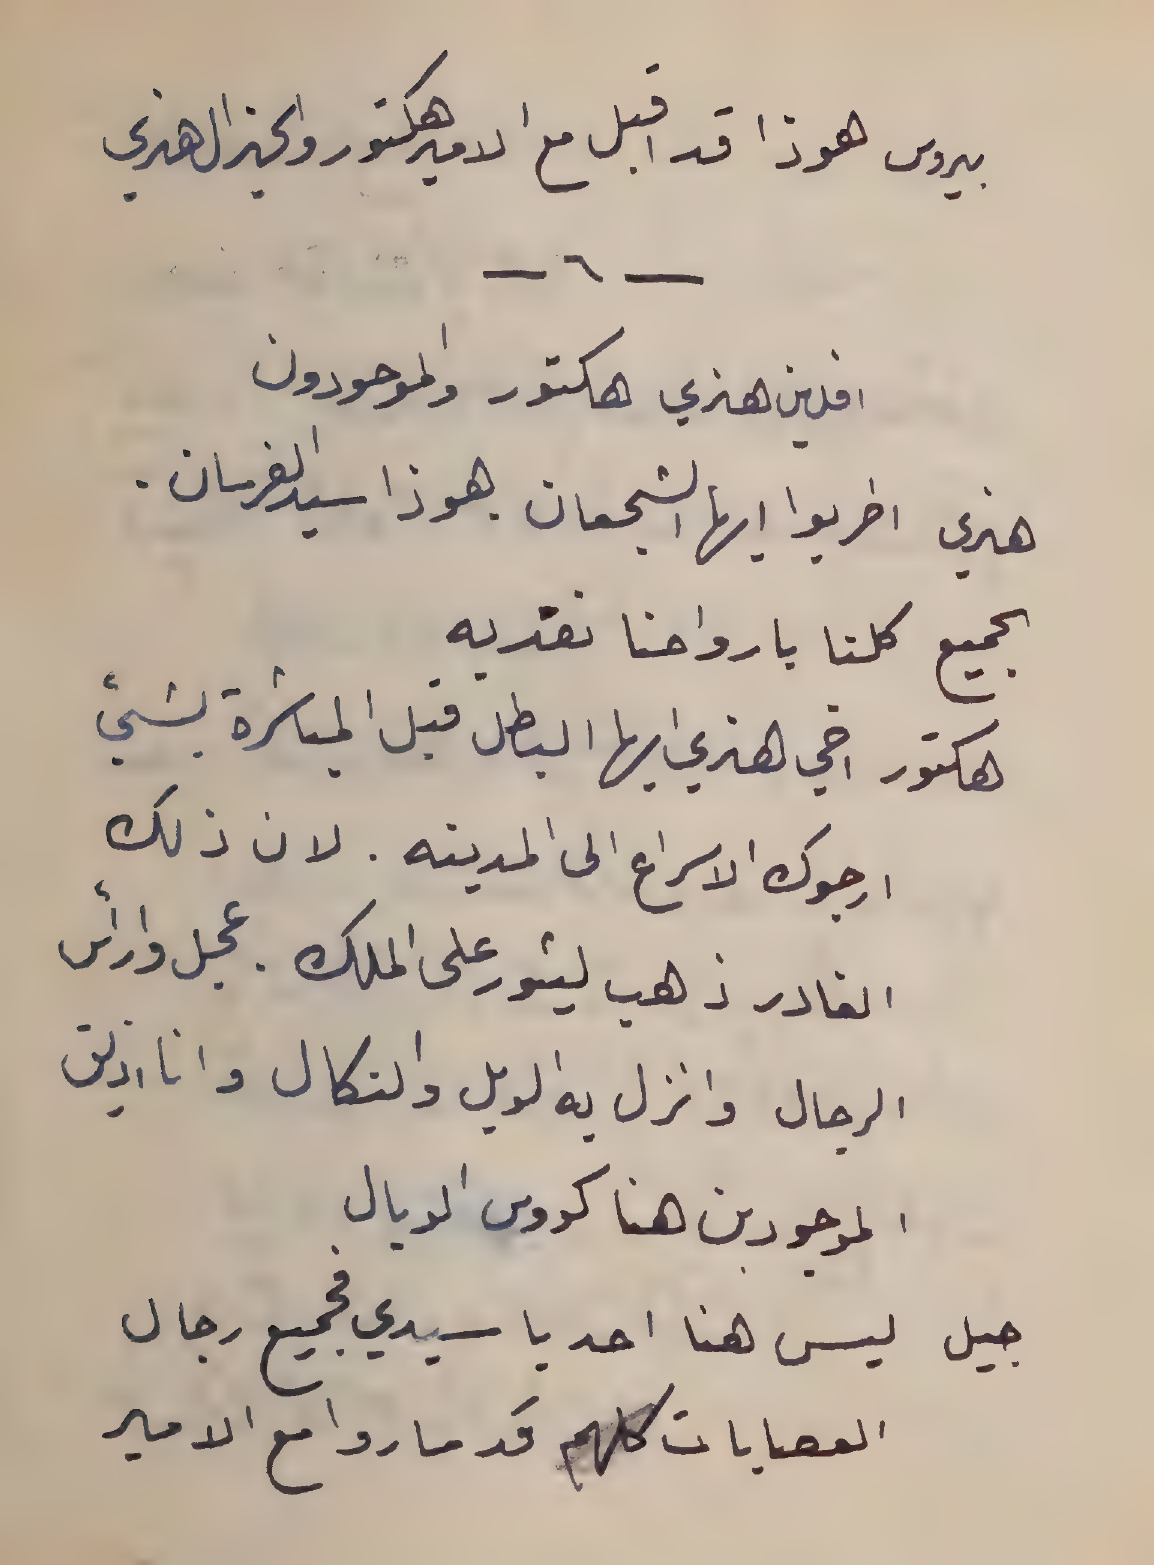 بيروس هوذا قد اقبل مع الامير هكتور والجنرال هنري
— ٦ —
افلين هنري هكتور والموجودون
هنري اضربوا ايها الشجعان هوذا سيد الفرسان .
الجميع كلنا بارواحنا نفديه
هكتور اخي هنري ايها البطل قبل المباشرة بشيء
ارجوك الاسراع الى المدينه . لان ذلك
الغادر ذهب ليثور على الملك . عجل وارأس
الرجال وانزل به الويل والنكال وانا اذيق
الموجودين هنا كووس الوبال
جيل ليس هنا احد يا سيدي فجميع رجال
العصابات كلهم قد ساروا مع الامير